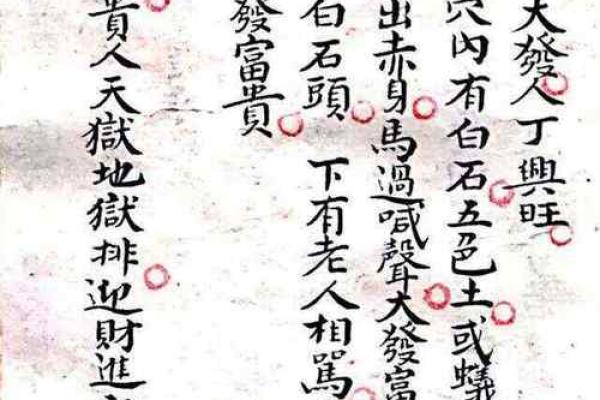 大發人丁興旺
穴內有白石五色土或蟻
出赤身馬過喊聲大發富
白石頭 下有老人相罵
發富貴
貴人天獄地獄排迎財進